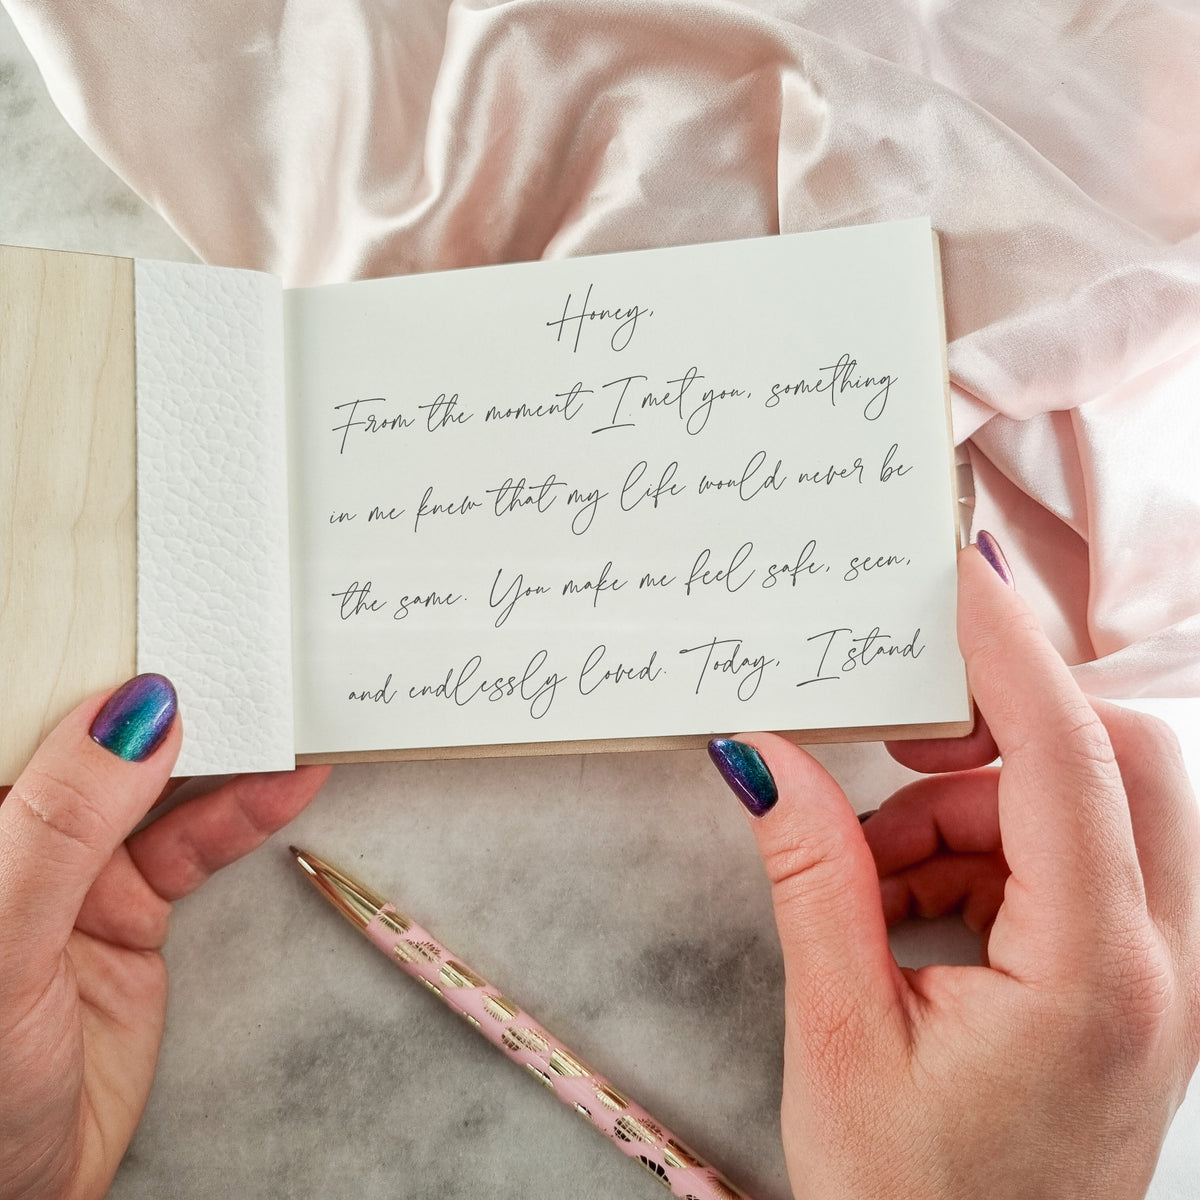 Honey,
From the moment I met you, something
in me knew that my life would never be
the same. You make me feel safe, seen,
and endlessly loved. Today, I stand